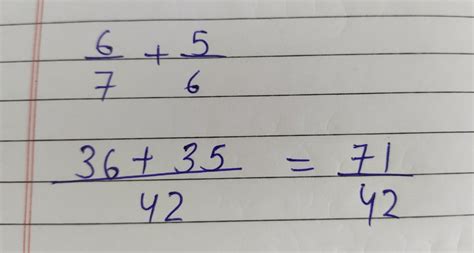 6/7 + 5/6
36 + 35/42 = 71/42